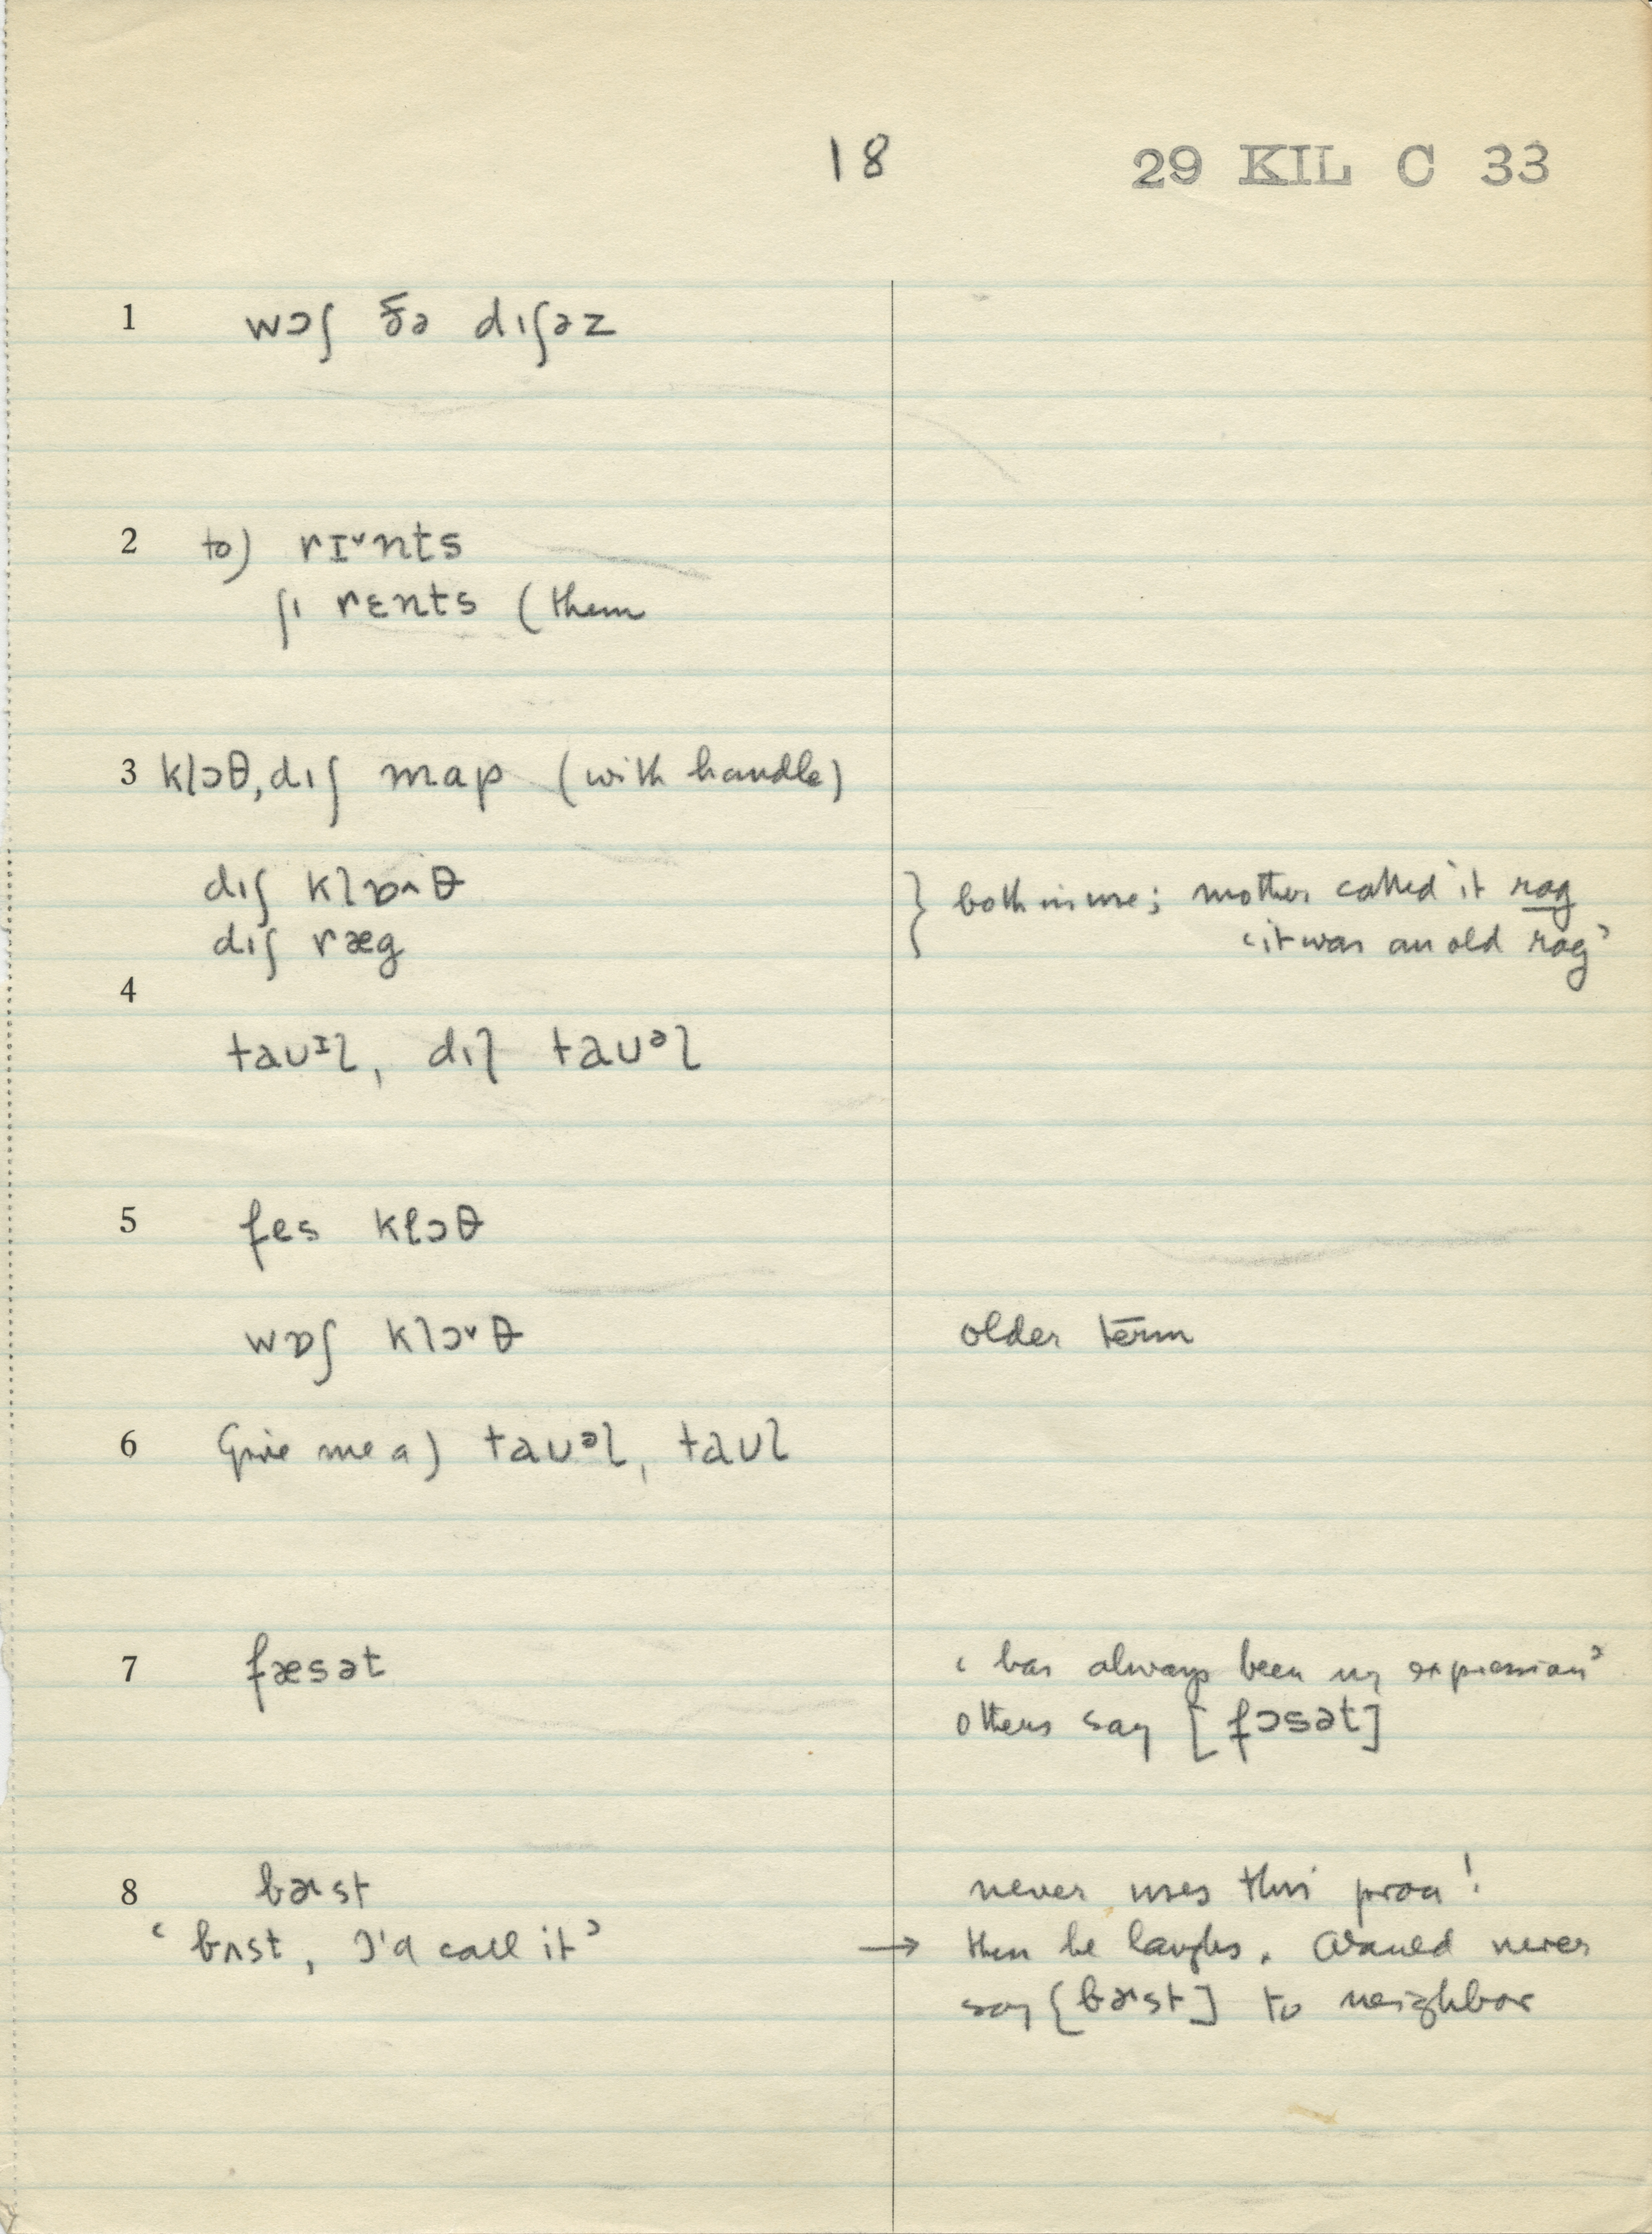 18 29 KIL C 33
1 wɔʃ ðə dıʃəz
2 to) rɪ˅nts
ʃı rɛnts (them
3 klɔθ, dıʃ map (with handle)
dıʃ klɒ˄θ } both in use; mother called it rag
dıʃ ræg ‘it was an old rag’
4
taʊᶦl, dıʃ taʊᵊl
5 fes klɔθ
wɒʃ klɔ˅θ older term
6 Give me a) taʊᵊl, taʊl
7 fæsət ‘has always been my expression’
others say [fɔsət]
8 bɚst never uses this pron!
‘bʌst, I'd call it’ → then he laughs. Would never
say [bɚst] to neighbor